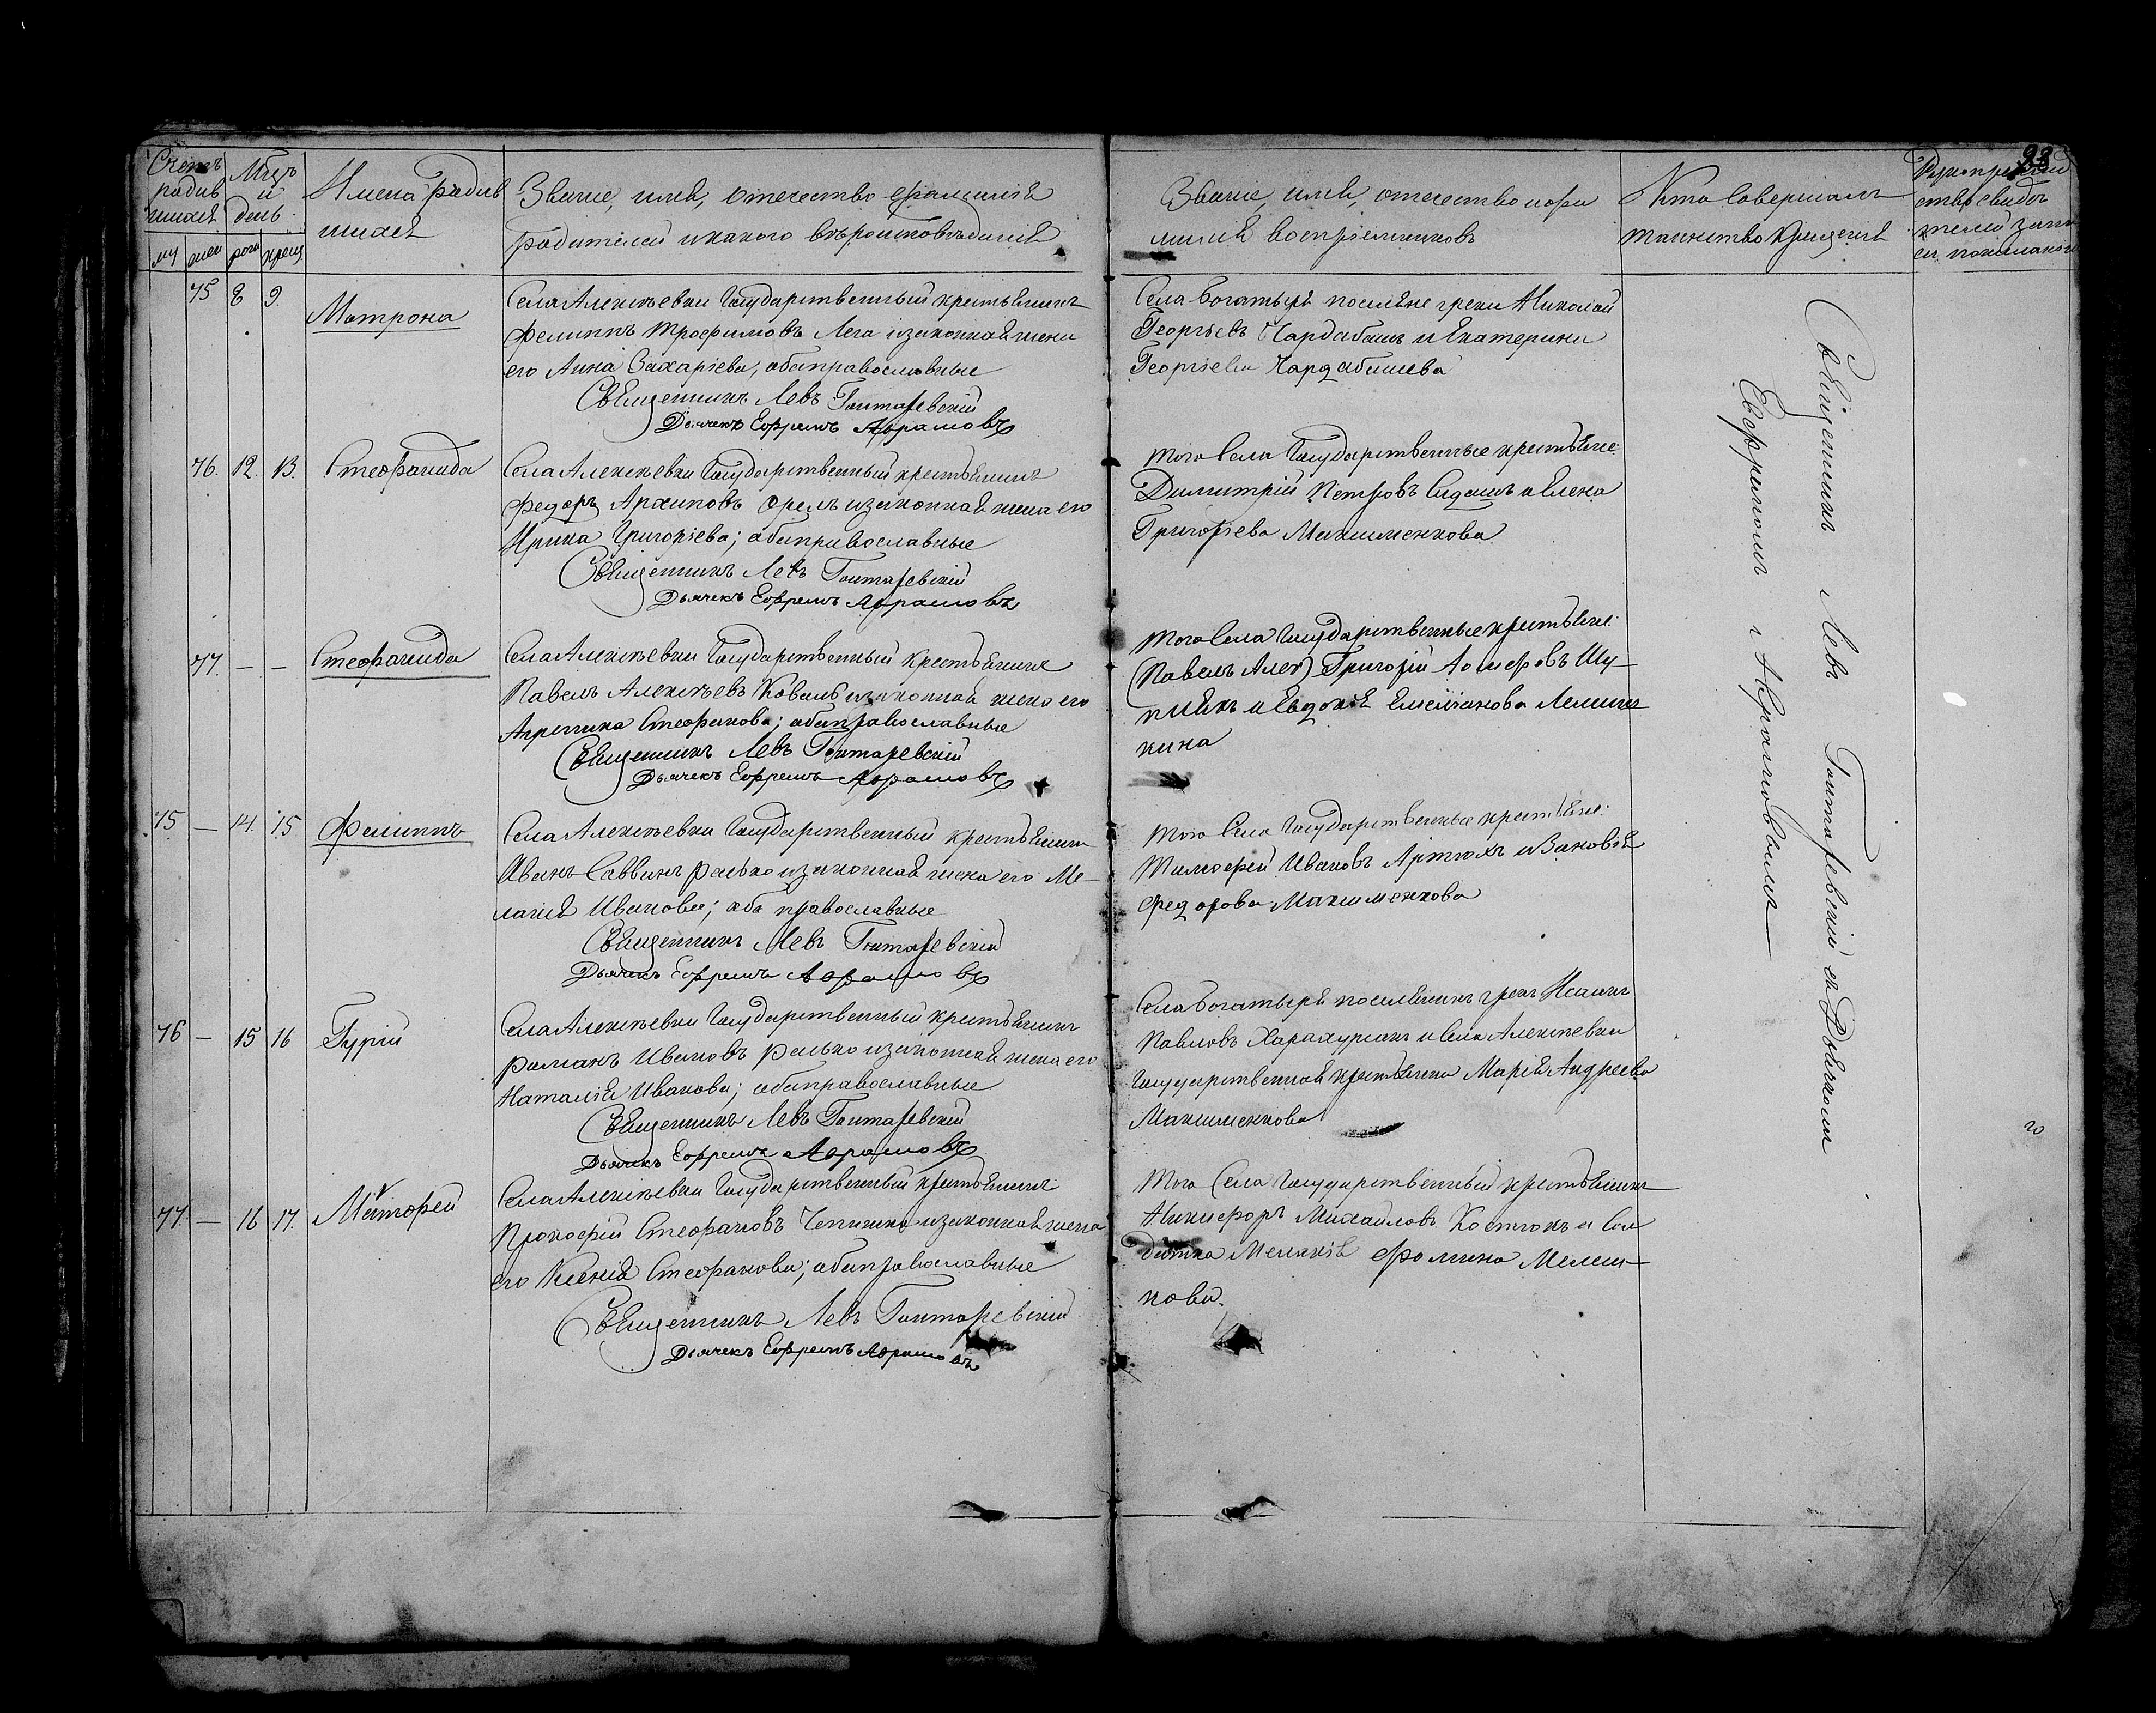 Счетъ родив шихся
Мцъ и день
Имена родив шихся
Званіе, имя, отечество фамилія
родителей и какого вѣроисповѣданія
Званіе, имя, отечество и фа
милія воспріемниковъ
Кто совершалъ
таинство крещенія
муж жен рож крещ
93
75 8 9. Матрона
Села Алексѣевки Государственный крестьянинъ
Филиппъ Трофимовъ Лега и законная жена
его Анна Захаріева, оба православные
Священникъ Левъ Гонтаревскій
Дьячекъ Ефремъ Абрамовъ
Села Богатыря поселяне греки Николай
Георгіевъ Чардабашъ и Екатерина
Георгіева Чардабашева
76. 12. 13. Стефанида
Села Алексѣевки Государственный крестьянинъ
Федоръ Архиповъ Орелъ и законная жена его
Ирина Григоріева; оба православные
Священникъ Левъ Гонтаревскій
Дьячекъ Ефремъ Абрамовъ
Того села Государственные крестьяне:
Димитрій Петровъ Сидашъ и Елена
Григоріева Максименкова
77. — — Стефанида
Села Алексѣевки Государственный крестьянинъ
Павелъ Алексѣевъ Коваль и законная жена его
Агрепина Стефанова; оба православные
Священникъ Левъ Гонтаревскій
Дьячекъ Ефремъ Абрамовъ
Того села Государственные крестьяне:
(Павелъ Алек) Григорій
и Евдокія
кина
75 — 14. 15. Филиппъ
Села Алексѣевки Государственный крестьянинъ
Иванъ Саввинъ Ралько и законная жена его Ме-
ланія Иванова; оба православные
Священникъ Левъ Гонтаревскій
Дьячекъ Ефремъ Абрамовъ
Того села Государственные крестьяне:
Тимофей Ивановъ Артюхъ и Зиновія
Федорова Максименкова
76 — 15 16 Гурій
Села Алексѣевки Государственный крестьянинъ
Романъ Ивановъ Ралько и законная жена его
Наталія Иванова; оба православные
Священникъ Левъ Гонтаревскій
Дьячекъ Ефремъ Абрамовъ
Села Богатыря поселянинъ грекъ Исаакъ
Павловъ и села Алексѣевки
Государственная крестьянка Марія Андреева
Максименкова
77. — 16 17. Матфей
Села Алексѣевки Государственный крестьянинъ
Прокофій Стефановъ и законная жена
его Ксенія Стефанова; оба православные
Священникъ Левъ Гонтаревскій
Дьячекъ Ефремъ Абрамовъ
Того села Государственный крестьянинъ
Никифоръ Михайловъ Костюкъ и сол
датка Меланія Фомина Мелеш-
кова.
Священникъ Левъ Гонтаревскій съ Дьячкомъ
Ефремомъ Абрамовымъ